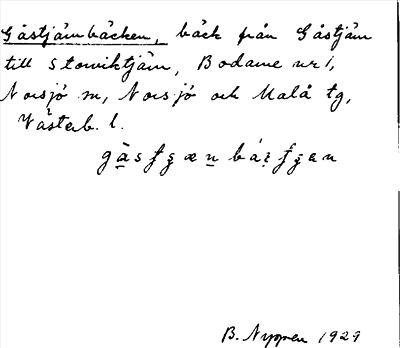 Gåstjärnbäcken, bäck från Gåstjärn
till Storviktjärn, Bodarne nr 1,
Norsjö sn, Norsjö och Malå tg,
Västerb. l.
B. Nygren 1929